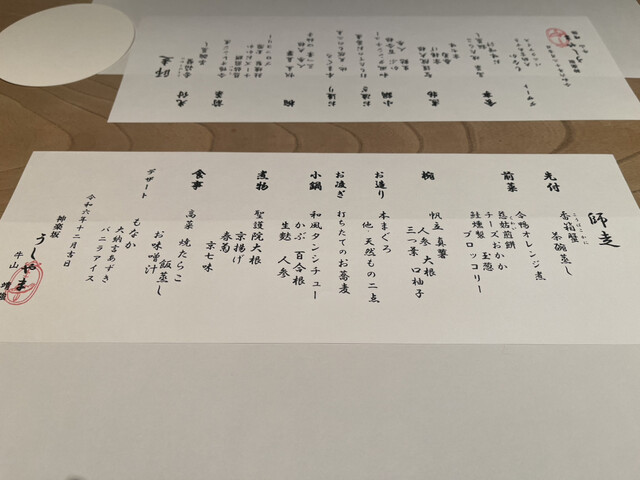 師走
先付
香箱蟹
こうばこがに
茶碗蒸し
前菜
合鴨オレンジ煮
慈姑煎餅
くわい
チーズおかか
玉葱
鮭燻製
ブロッコリー
椀
帆立真薯
人参 大根
三つ葉 口柚子
お造り
本まぐろ
他、天然もの二点
お凌ぎ
打ちたてのお蕎麦
小鍋
和風タンシチュー
かぶ 百合根
生麩 人参
煮物
聖護院大根
京揚げ
春菊
京七味
食事
高菜 焼たらこ
飯蒸し
お味噌汁
デザート
もなか
大納言あずき
バニラアイス
令和六年十二月吉日
神楽坂
うしやま
牛山